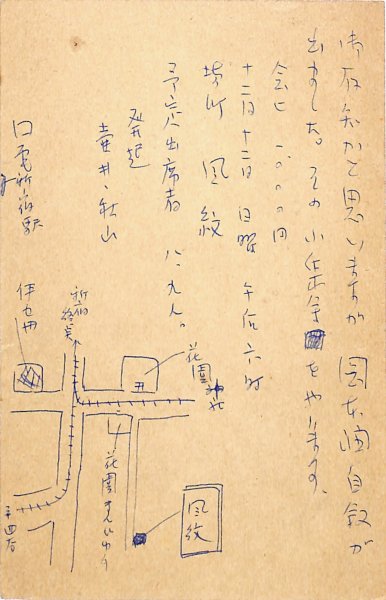 御存知かと思いますが 岡本画自叙が
出ました。その小集会をやります。
会ヒ 一、〇〇〇円
十二月十二日 日曜 午后六時
場所 風紋
予定出席者 八、九人。
発起
壷井・秋山
口電新宿駅
新宿
終点
伊セ丹
花園神社
花園まんじゅう
風紋